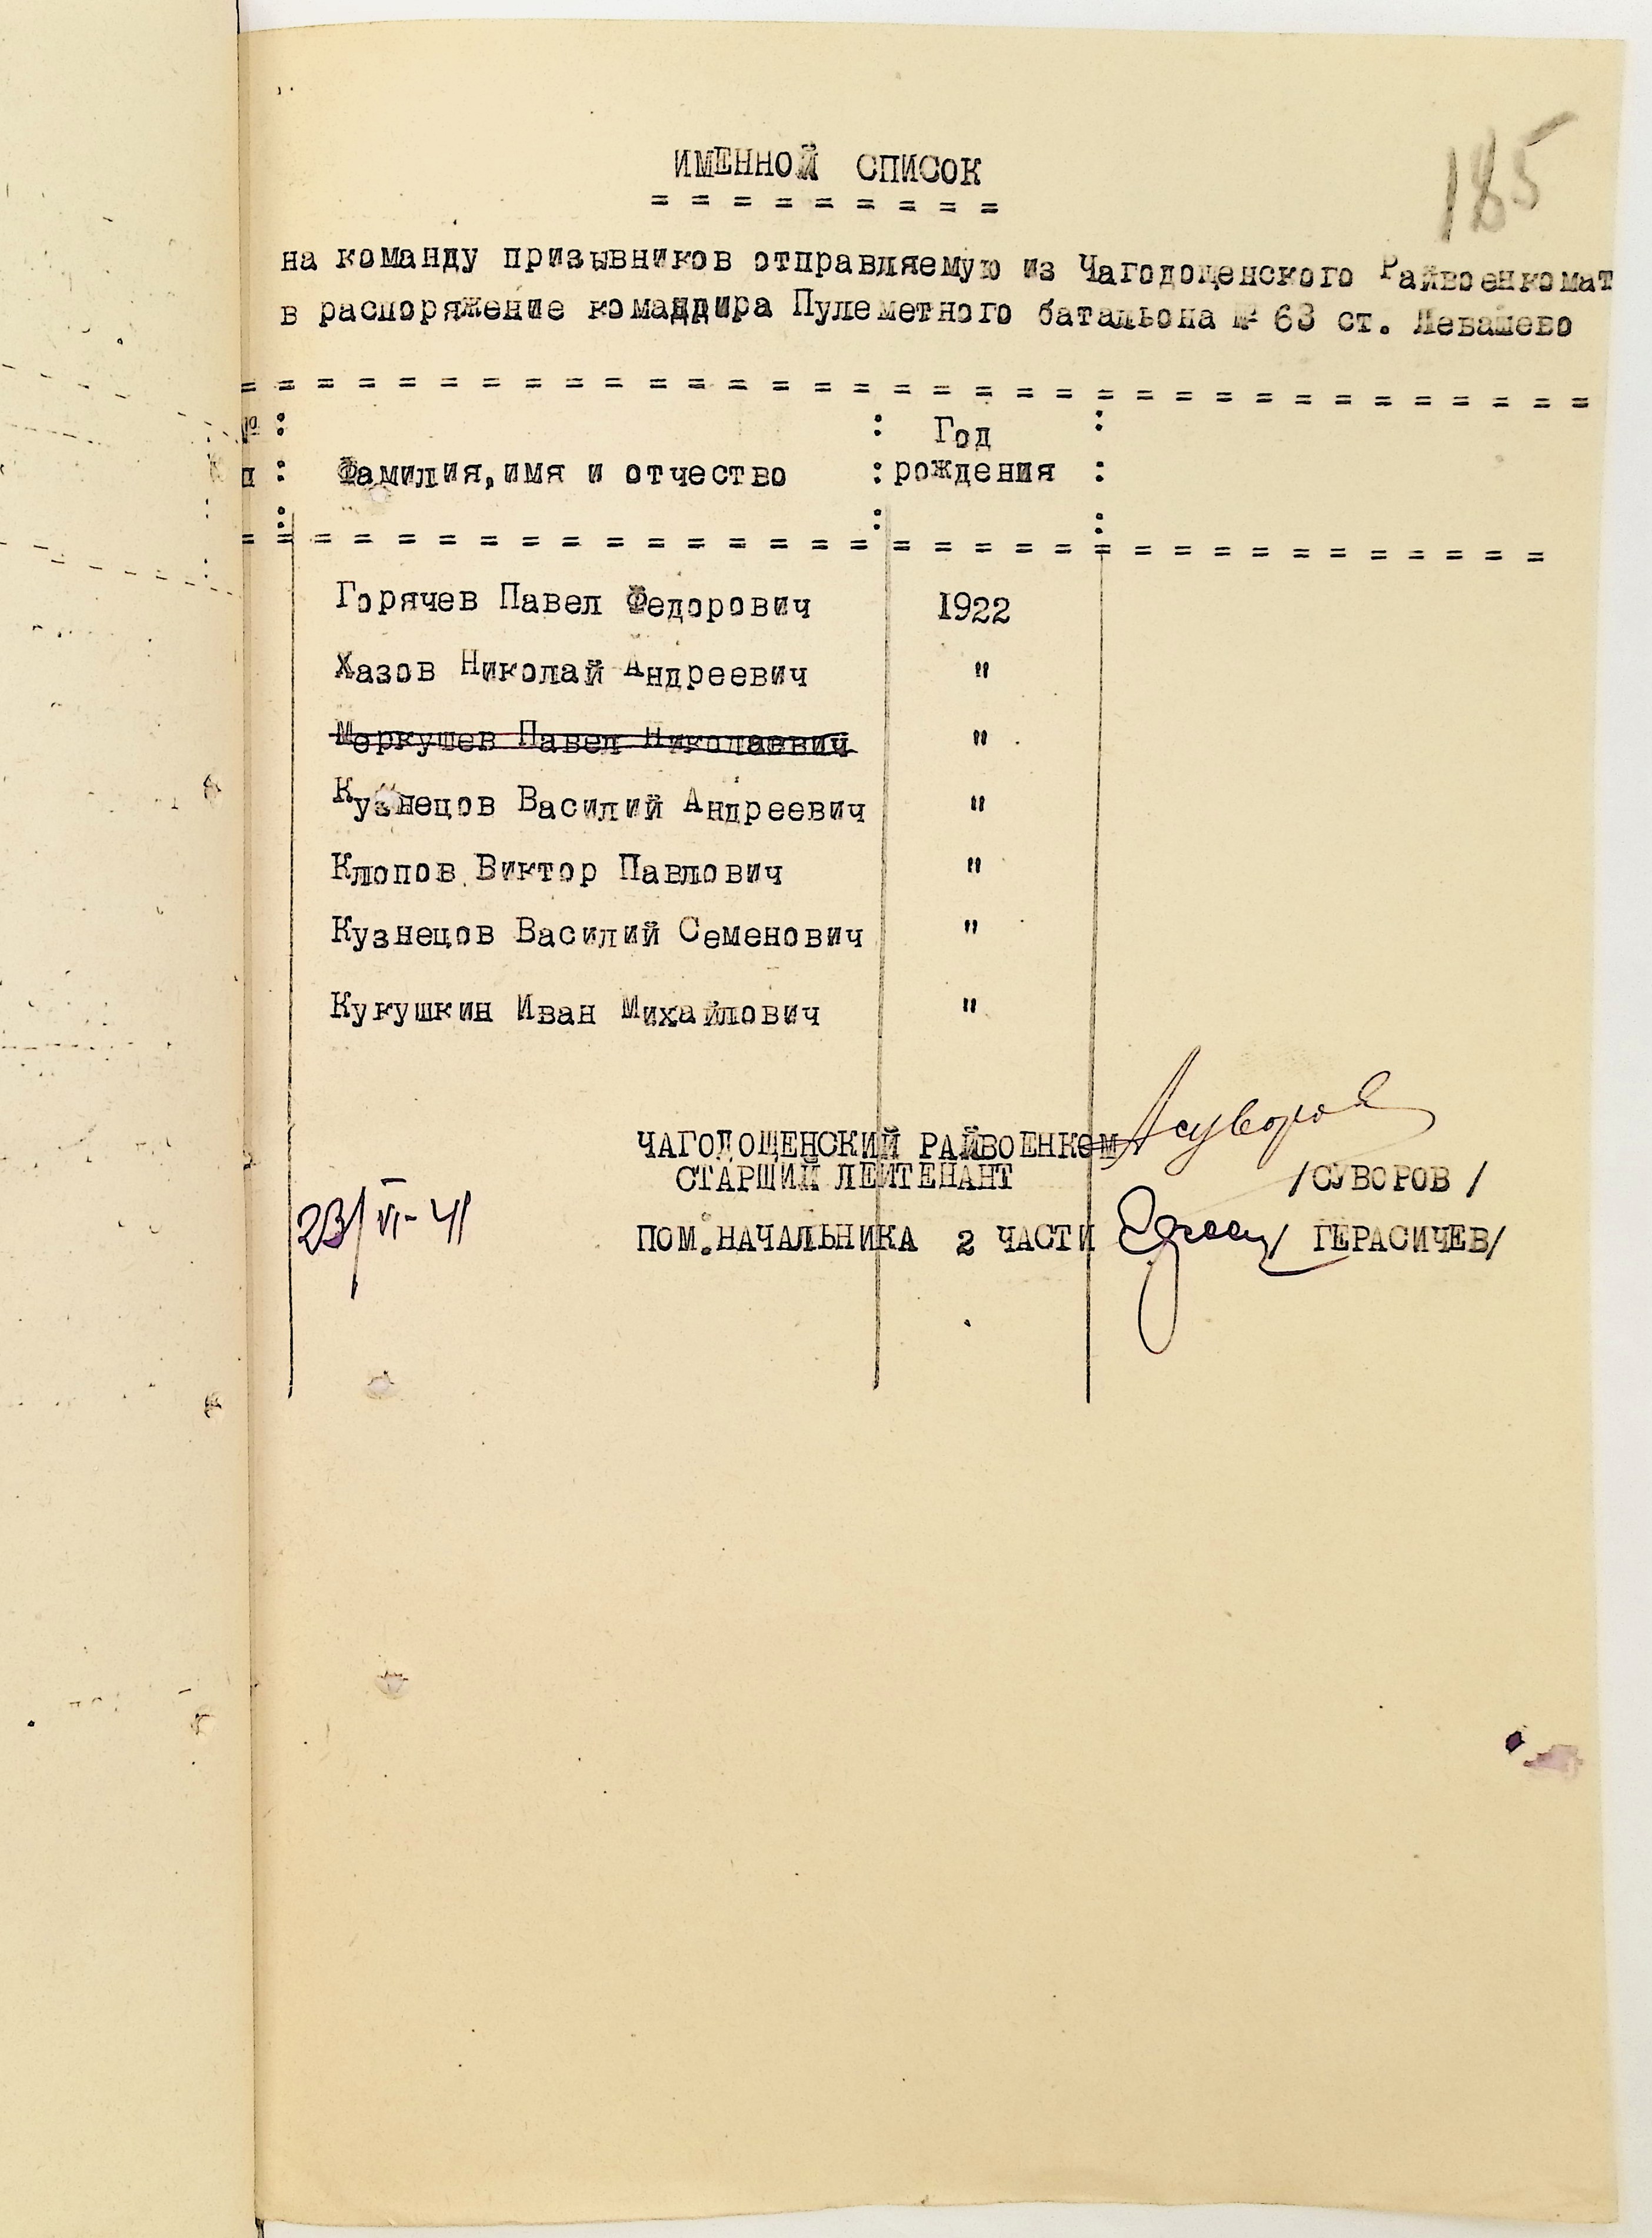 185
ИМЕННОЙ СПИСОК
= = = = = = = = =
на команду призывников отправляемую из Чагодощенского Райвоенкомат
в распоряжение командира Пулеметного батальона № 63 ст. Левашево
№ : : Год :
п : Фамилия, имя и отчество : рождения :
Горячев Павел Федорович 1922
Хазов Николай Андреевич "
Меркушев Павел Николаевич "
Кузнецов Василий Андреевич "
Клопов Виктор Павлович "
Кузнецов Василий Семенович "
Кукушкин Иван Михайлович "
ЧАГОДОЩЕНСКИЙ РАЙВОЕНКОМ Асуворов
СТАРШИЙ ЛЕЙТЕНАНТ /СУВОРОВ /
23/VI-41
ПОМ.НАЧАЛЬНИКА 2 ЧАСТИ / ГЕРАСИЧЕВ/